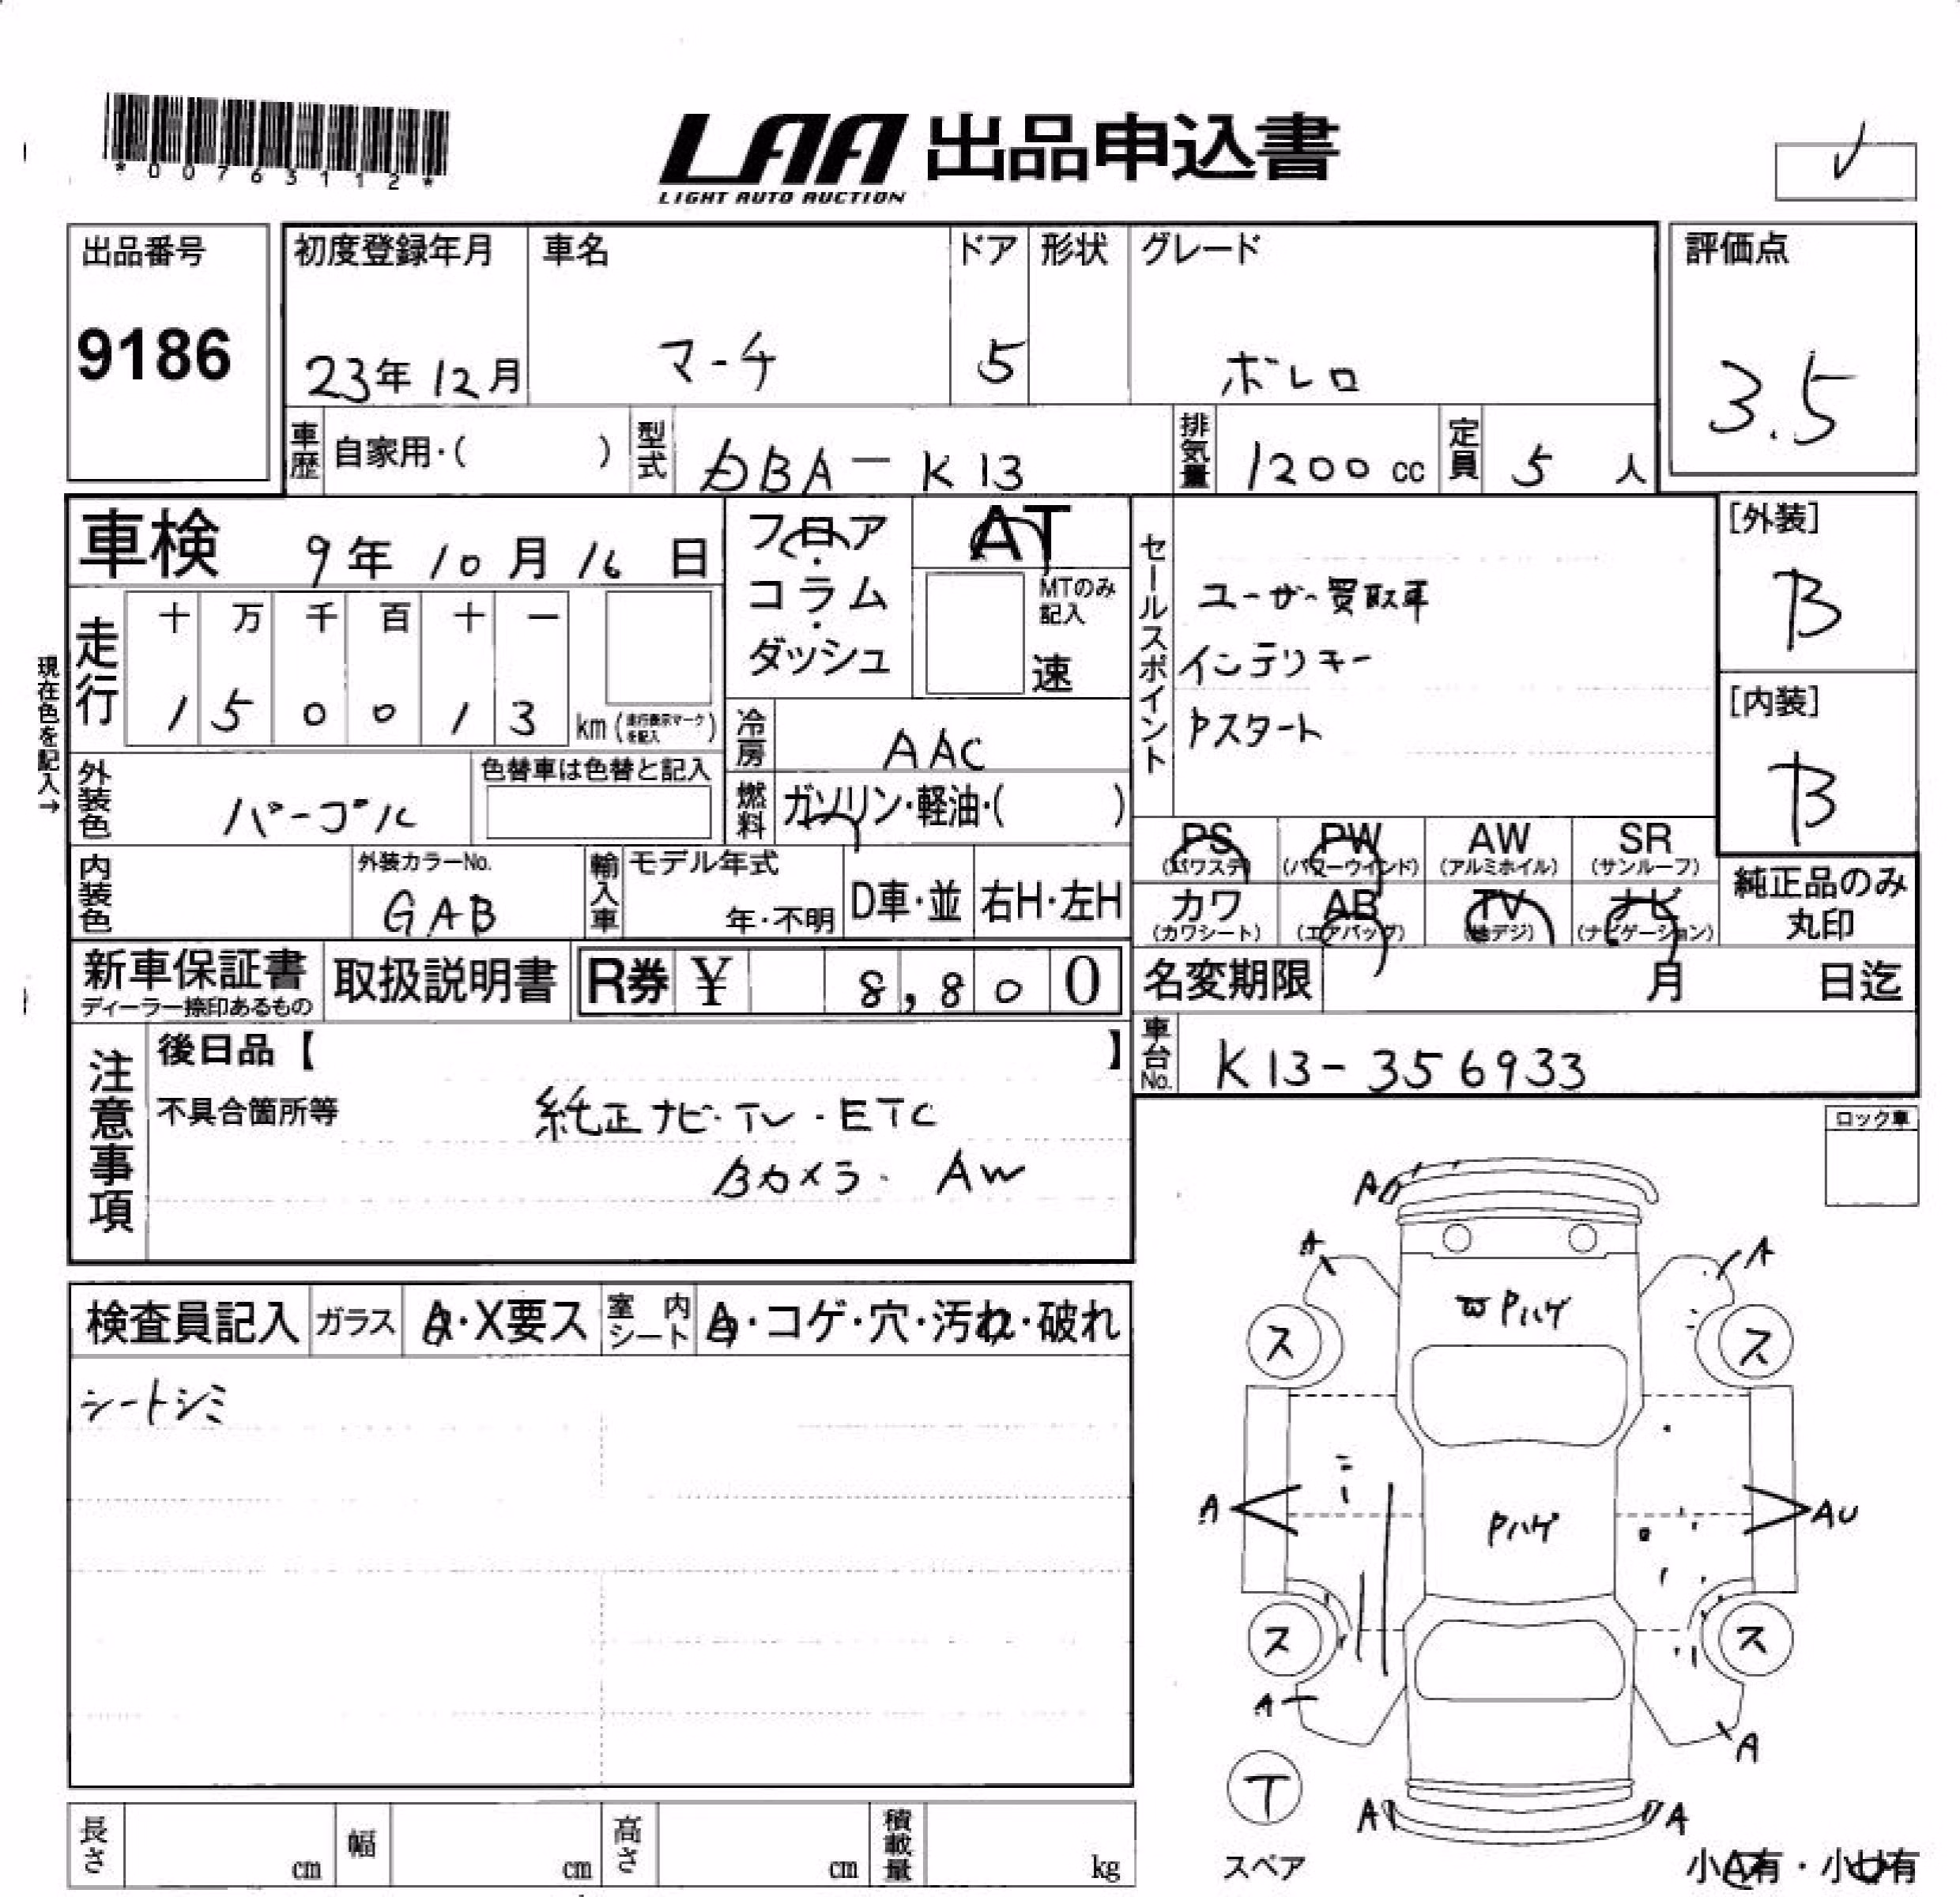 *00763112*
LAA 出品申込書
LIGHT AUTO AUCTION
出品番号
9186
初度登録年月
23年 12月
車名
マーチ
ドア
5
形状
グレード
ボレロ
評価点
3.5
車歴 自家用・( )
型式 DBA-K13
排気量 1200 cc
定員 5 人
車検 9年 10月 16日
フロア・コラム・ダッシュ
AT
MTのみ記入
速
セールスポイント
ユーザー買取車
インテリキー
Pスタート
[外装]
B
[内装]
B
現在色を記入→
走行
十 万 千 百 十 一
1 5 0 0 1 3 km (走行表示マークを記入)
冷房 AAC
外装色 パープル
色替車は色替と記入
燃料 ガソリン・軽油・( )
PS (パワステ)
PW (パワーウインド)
AW (アルミホイル)
SR (サンルーフ)
カワ (カワシート)
AB (エアバッグ)
TV (地デジ)
ナビ (ナビゲーション)
純正品のみ丸印
内装色
外装カラーNo.
GAB
輸入車
モデル年式
年・不明
D車・並
右H・左H
新車保証書
ディーラー捺印あるもの
取扱説明書
R券 ¥ 8,800
名変期限 月 日迄
車台No. K13-356933
注意事項
後日品【 】
不具合箇所等
純正ナビ・TV・ETC
Bカメラ・AW
ロック車
検査員記入
ガラス
A・X要ス
室内シート
A・コゲ・穴・汚れ・破れ
シートシミ
A
A
A
Pハゲ
ス
ス
A
Pハゲ
AU
ス
ス
A
A
T
スペア
A
A
小A有・小U有
長さ cm
幅 cm
高さ cm
積載量 kg